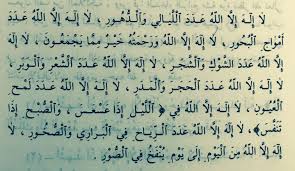 لَا إِلَهَ إِلَّا اللَّهُ عَدَدَ ٱللَّيَالِي وَٱلدُّهُورِ، لَا إِلَهَ إِلَّا اللَّهُ عَدَدَ
أَمْوَاجِ ٱلْبُحُورِ، لَا إِلَهَ إِلَّا اللَّهُ وَرَحْمَتُهُ خَيْرٌ مِمَّا يَجْمَعُونَ، لَا إِلَهَ
إِلَّا اللَّهُ عَدَدَ الشَّوْكِ وَالشَّجَرِ، لَا إِلَهَ إِلَّا اللَّهُ عَدَدَ الشَّعْرِ وَالْوَبَرِ،
لَا إِلَهَ إِلَّا اللَّهُ عَدَدَ الْحَجَرِ وَالْمَدَرِ، لَا إِلَهَ إِلَّا اللَّهُ عَدَدَ لَمْحِ
الْعُيُونِ، لَا إِلَهَ إِلَّا اللَّهُ فِي ﴿ٱللَّيْلِ إِذَا عَسْعَسَ، وَٱلصُّبْحِ إِذَا
تَنَفَّسَ﴾، لَا إِلَهَ إِلَّا اللَّهُ عَدَدَ الرِّيَاحِ فِي الْبَرَارِي وَالصُّخُورِ، لَا
إِلَهَ إِلَّا اللَّهُ مِنَ الْيَوْمِ إِلَى يَوْمِ يُنْفَخُ فِي الصُّورِ.